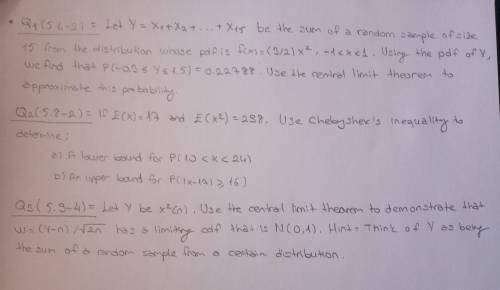 • Q1(5.6-2) = Let Y = X1+X2+ ... + X15 be the sum of a random sample of size
15 from the distribution whose pdf is f(x)=(3/2)x², -1<x<1. Using the pdf of Y,
we find that P(-0.3 ≤ Y ≤ 1.5) = 0.22788. Use the central limit theorem to
approximate this probability.
Q2(5.8-2) = If E(X)=17 and E(x²)=298, Use Chebyshev's inequality to
determine;
a) A lower bound for P(10<x<24)
b) An upper bound for P(|x-17| ≥ 16)
Q3(5.9-4) = Let Y be x²(n). Use the central limit theorem to demonstrate that
W=(Y-n)/√2n has a limiting cdf that is N(0,1). Hint = Think of Y as being
the sum of a random sample from a certain distribution.